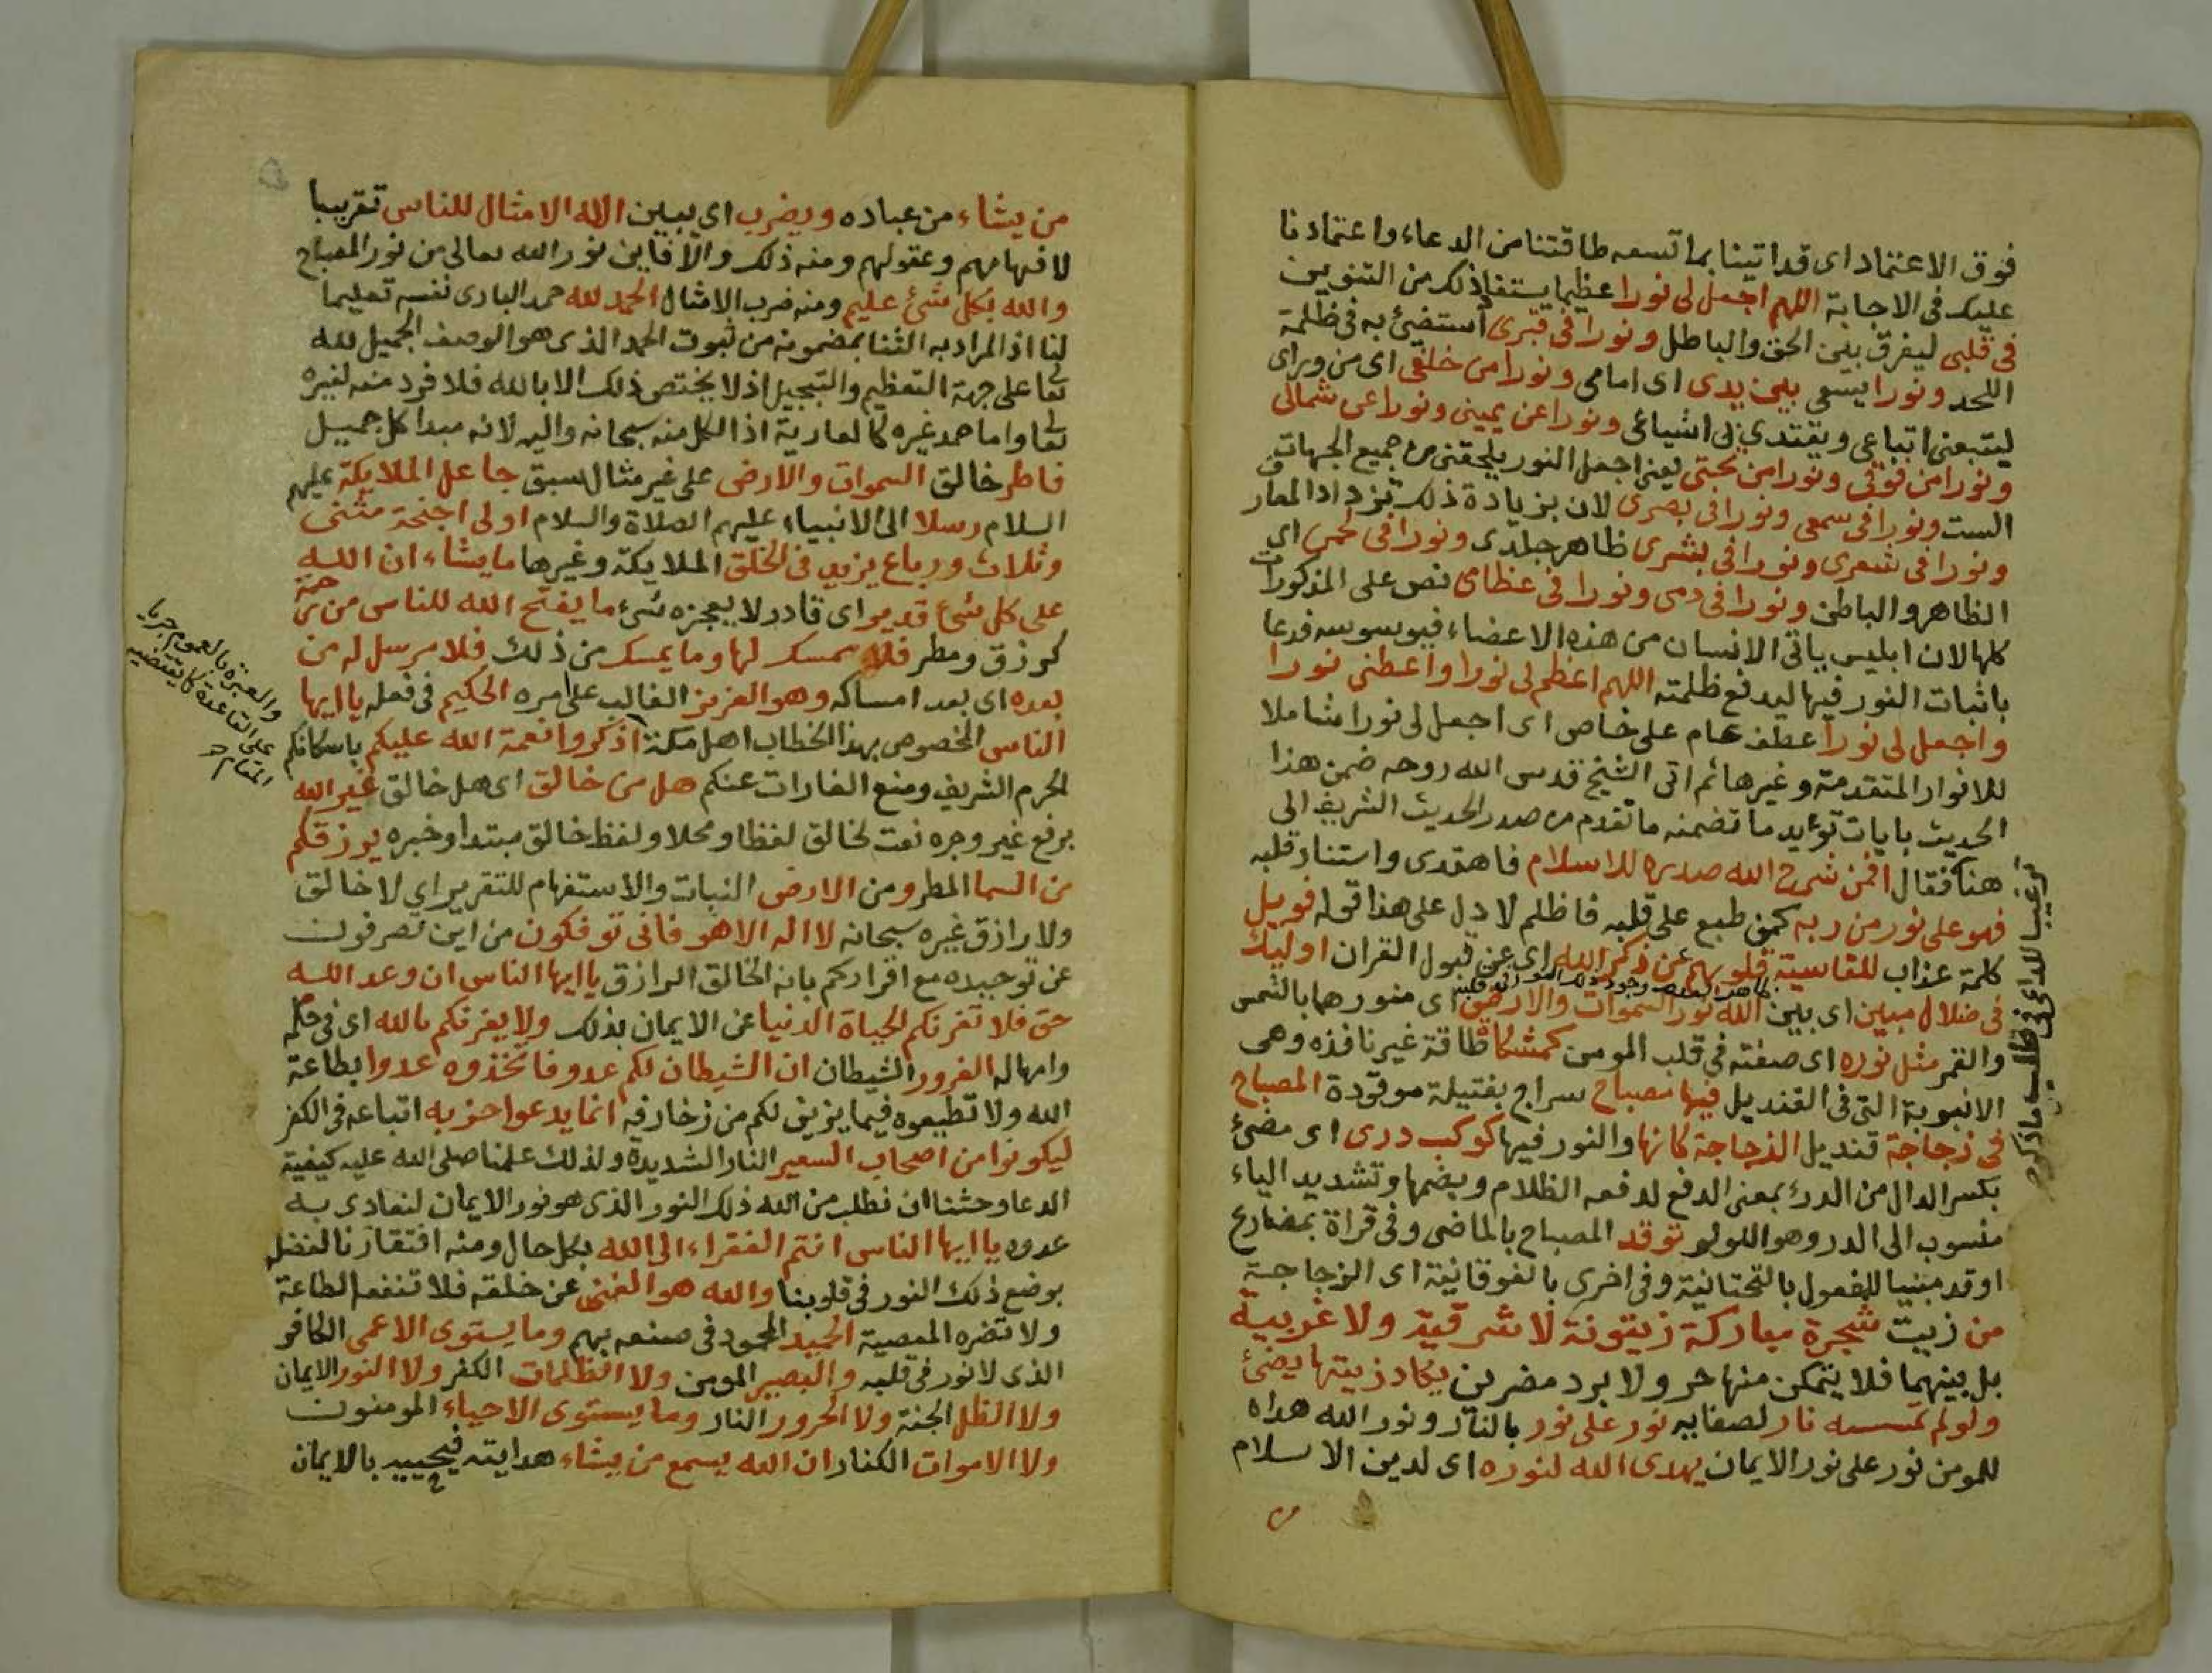 فوق الاعتماد اى قد اتينا بما تسعه طاقتنا من الدعاء واعتمادنا
عليك فى الاجابة اللهم اجعل لى نورا عظيما يستفاد ذلك من التنوين
فى قلبى ليفرق بين الحق والباطل ونورا فى قبرى أستضئ به فى ظلمة
اللحد ونورا يسعى بين يدى اى امامى ونورا من خلفى اى من وراى
ليتبعنى اتباعى ويقتدي بى اشياعى ونورا عن يمينى ونورا عن شمالى
ونورا من فوقى ونورا من تحتى يعنى اجعل النور يلحقنى من جميع الجهات
الست ونورا فى سمعى ونورا فى بصرى لان بزيادة ذلك تزداد المعارف
ونورا فى شعرى ونورا فى بشرى ظاهر جلدى ونورا فى لحمى اى
الظاهر والباطن ونورا فى دمى ونورا فى عظامى نص على المذكورات
كلها لان ابليس ياتى الانسان من هذه الاعضاء فيوسوسه فدعا
باثبات النور فيها ليدفع ظلمته اللهم اعظم لى نورا واعطنى نورا
واجعل لى نورا عطف عام على خاص اى اجعل لى نورا شاملا
للانوار المتقدمة وغيرها ثم اتى الشيخ قدس الله روحه ضمن هذا
الحديث بايات تؤيد ما تضمنه ما تقدم من صدر الحديث الشريف الى
هنا فقال افمن شرح الله صدره للاسلام فاهتدى واستنار قلبه
فهو على نور من ربه كمن طبع على قلبه فاظلم لا دل على هذا قوله فويل
كلمة عذاب للقاسية قلوبهم عن ذكر الله اى عن قبول القران اوليك
فى ضلال مبين اى بين الله نور السموات والارض اى منورها بالشمس
والقمر مثل نوره اى صفته فى قلب المومن كمشكاة طاقة غير نافذه وهى
الانبوبة التى فى القنديل فيها مصباح سراج بفتيلة موقودة المصباح
فى زجاجة قنديل الزجاجة كانها والنور فيها كوكب درى اى مضئ
بكسر الدال من الدرئ بمعنى الدفع لدفعه الظلام وبضمها وتشديد الياء
منسوب الى الدر وهو اللولو توقد المصباح بالماضى وفى قراة بمضارع
اوقد مبنيا للمفعول بالتحتانية وفى اخرى بالفوقانية اى الزجاجة
من زيت شجرة مباركة زيتونة لا شرقية ولا غربية
بل بينهما فلا يتمكن منها حر ولا برد مضرين يكاد زيتها يضئ
ولو لم تمسسه نار لصفايه نور على نور بالنار ونور الله هداه
للمومن نور على نور الايمان يهدى الله لنوره اى لدين الاسلام
من
من يشاء من عباده ويضرب اى يبين الله الامثال للناس تقريبا
لافهامهم وعقولهم ومنه ذلك والا فاين نور الله تعالى من نور المصباح
والله بكل شئ عليم ومنه ضرب الامثال الحمد لله حمد البارى نفسه تعليما
لنا اذ المراد به الثنا بمضمونه من ثبوت الحمد الذى هو الوصف الجميل لله
تعا على جهة التعظيم والتبجيل اذ لا يختص ذلك الا بالله فلا فرد منه لغيره
تعا واما حمد غيره كالعارية اذ الكل منه سبحانه واليه لانه مبدا كل جميل
فاطر خالق السموات والارض على غير مثال سبق جاعل الملايكة عليهم
السلام رسلا الى الانبياء عليهم الصلاة والسلام اولى اجنحة مثنى
وثلاث ورباع يزيد فى الخلق الملايكة وغيرها ما يشاء ان الله
على كل شئ قدير اى قادر لا يعجزه شئ ما يفتح الله للناس من رحمة
كرزق ومطر فلا ممسك لها وما يمسك من ذلك فلا مرسل له من
بعده اى بعد امساكه وهو العزيز الغالب على امره الحكيم فى فعله يا ايها
الناس المخصوص بهذا الخطاب اهل مكة اذكروا نعمة الله عليكم باسكانكم
الحرم الشريف ومنع الغارات عنكم هل من خالق اى هل خالق غير الله
برفع غير وجره نعت لخالق لفظا ومحلا ولفظ خالق مبتدا وخبره يرزقكم
من السما المطر ومن الارض النبات والاستفهام للتقرير اي لا خالق
ولا رازق غيره سبحانه لا اله الا هو فانى توفكون من اين تصرفون
عن توحيده مع اقراركم بانه الخالق الرازق يا ايها الناس ان وعد الله
حق فلا تغرنكم الحياة الدنيا عن الايمان بذلك ولا يغرنكم بالله اى فى حلمه
وامهاله الغرور الشيطان ان الشيطان لكم عدو فاتخذوه عدوا بطاعة
الله ولا تطيعوه فيما يزين لكم من زخارفه انما يدعوا حزبه اتباعه فى الكفر
ليكونوا من اصحاب السعير النار الشديدة ولذلك علمنا صلى الله عليه كيفية
الدعا وحثنا ان نطلب من الله ذلك النور الذى هو نور الايمان لنعادى به
عدوه يا ايها الناس انتم الفقراء الى الله بكل حال ومنه افتقارنا لفضله
بوضع ذلك النور فى قلوبنا والله هو الغنى عن خلقه فلا تنفعه الطاعة
ولا تضره المعصية الحميد المحمود فى صنعه بهم وما يستوى الاعمى الكافر
الذى لا نور فى قلبه والبصير المومن ولا الظلمات الكفر ولا النور الايمان
ولا الظل الجنة ولا الحرور النار وما يستوى الاحياء المومنون
ولا الاموات الكفار ان الله يسمع من يشاء هدايته فيجيبه بالايمان
والعبرة بالعموم جريا
على القاعدة كما يقتضيه
المقام